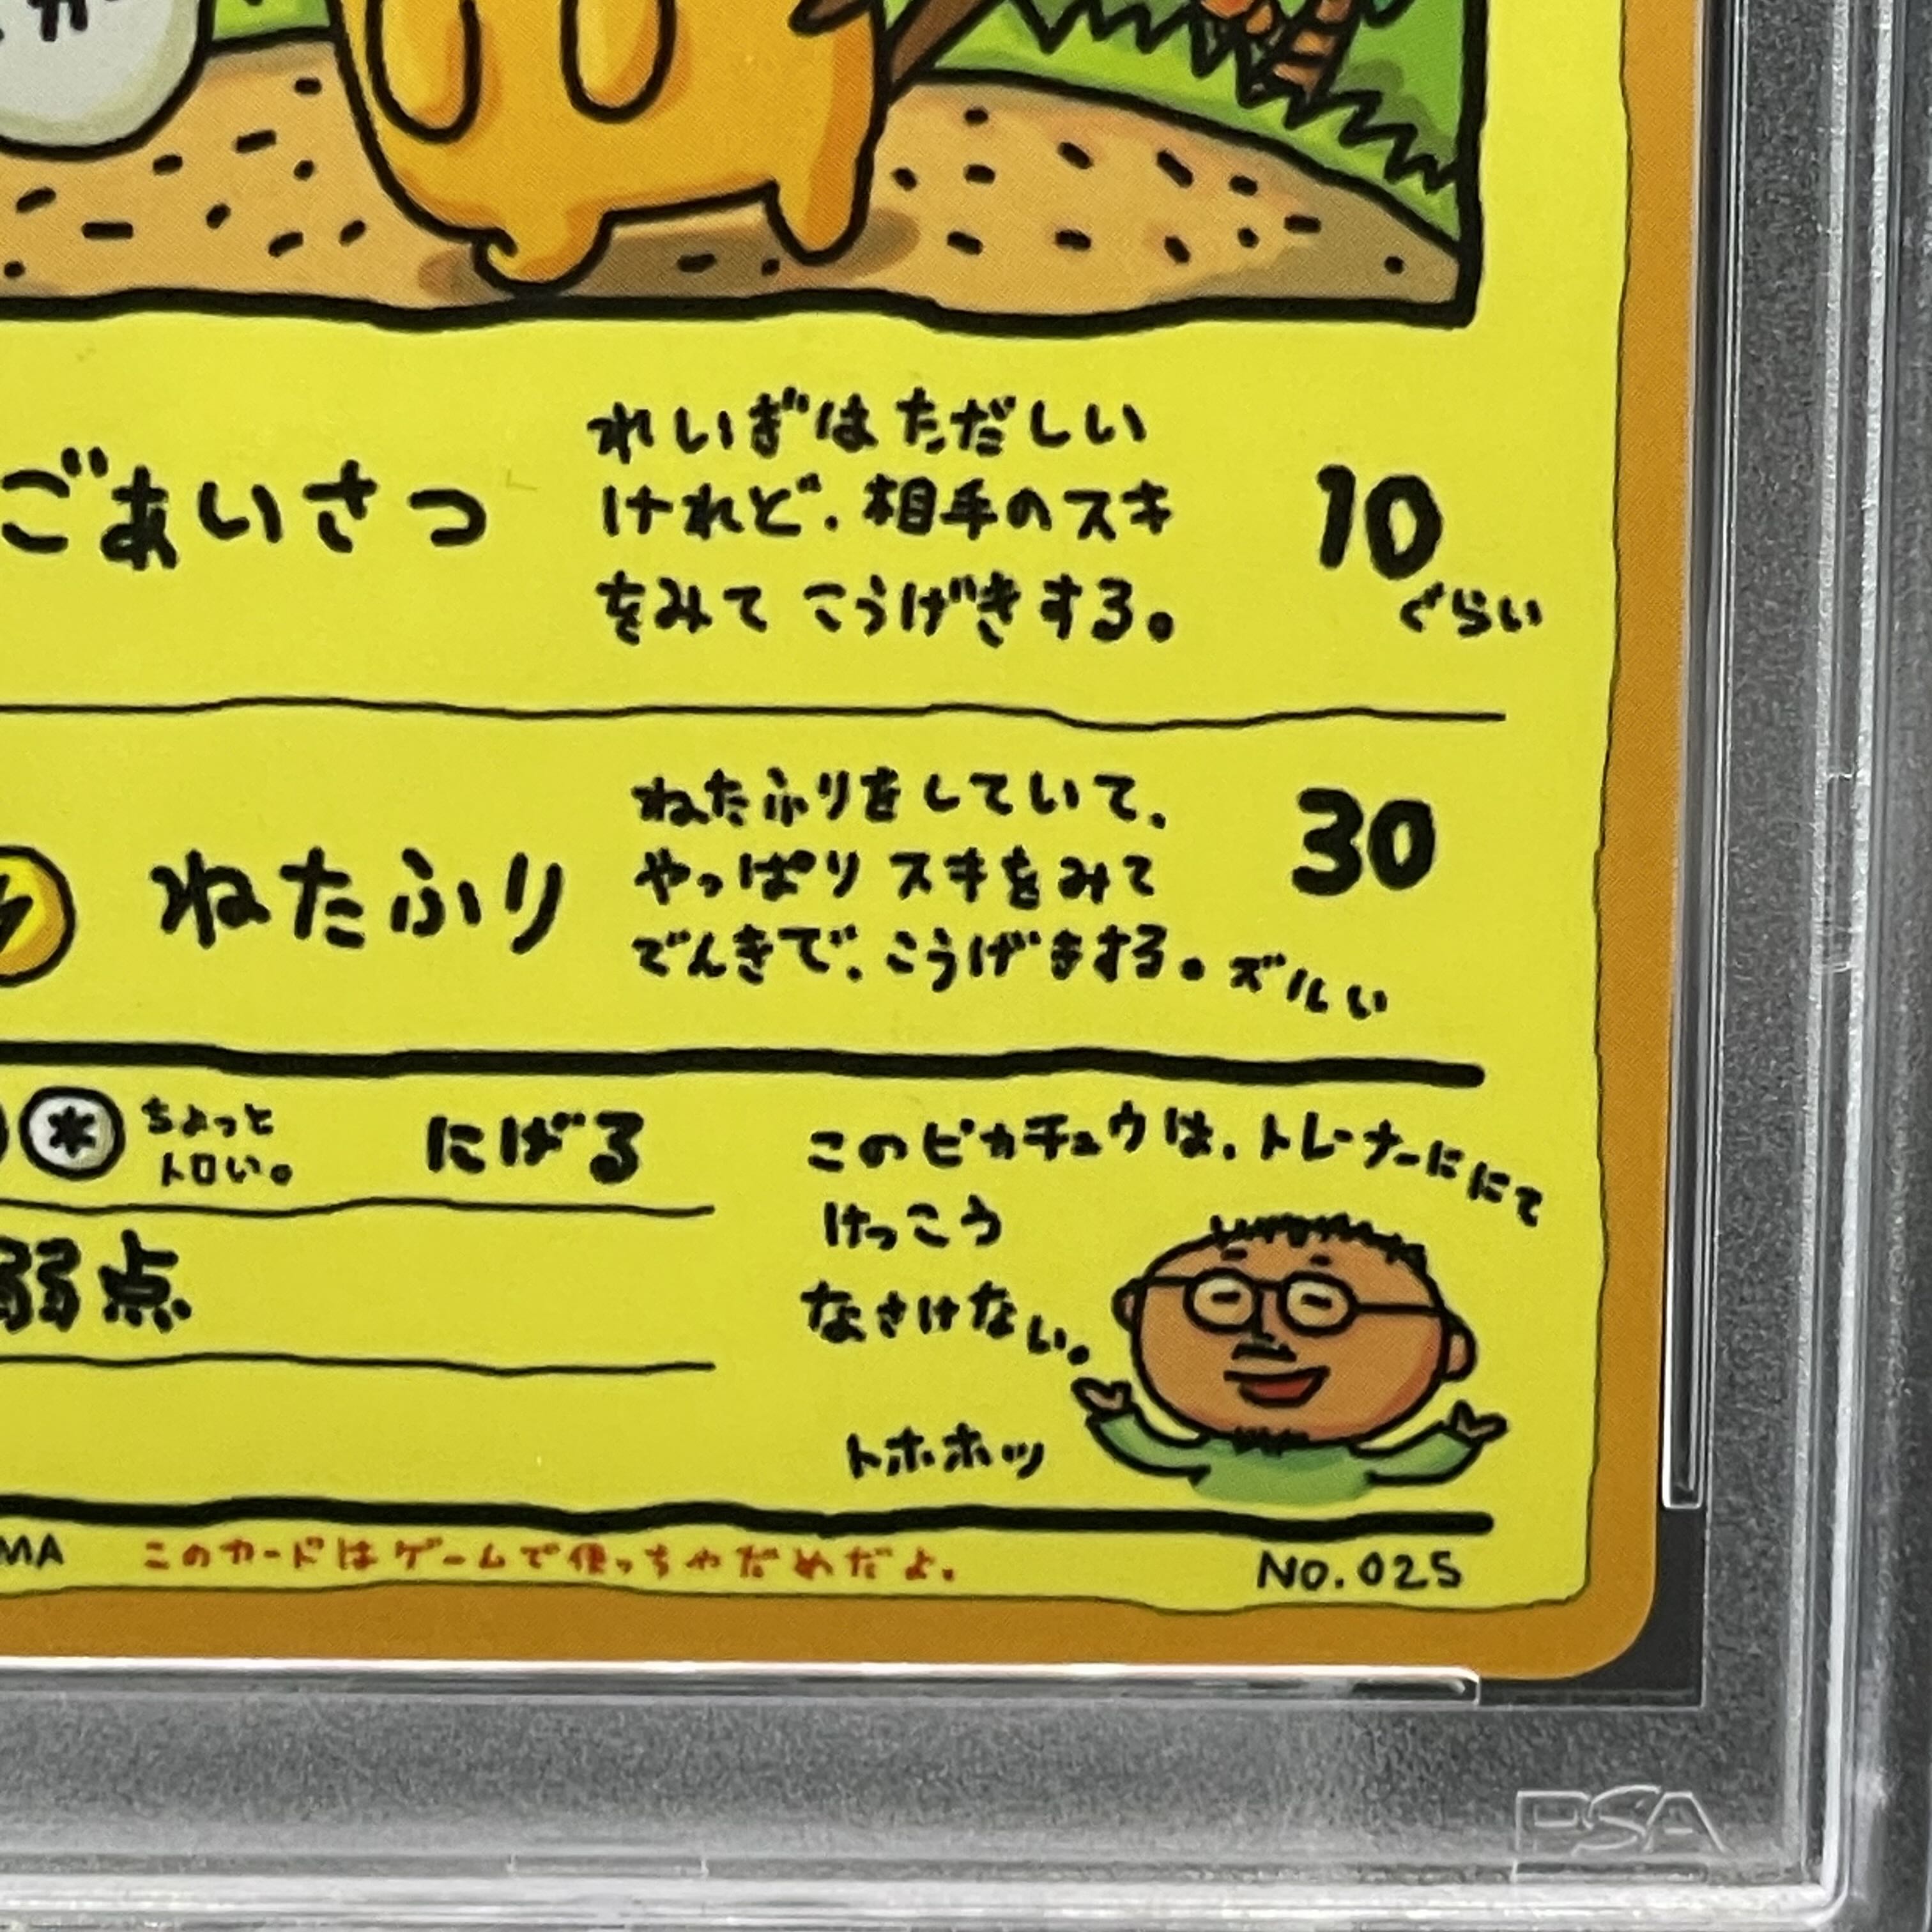 ごあいさつ
れいぎは ただしい
けれど、相手のスキ
をみて こうげきする。
10
ぐらい
ねたふり
ねたふりをしていて、
やっぱり スキをみて
でんきで、こうげきする。ズルい
30
*
ちょっと
トロい。
にげる
弱点
このピカチュウは、トレーナーににて
けっこう
なさけない。
トホホッ
MA
このカードはゲームで使っちゃだめだよ。
NO.025
PSA